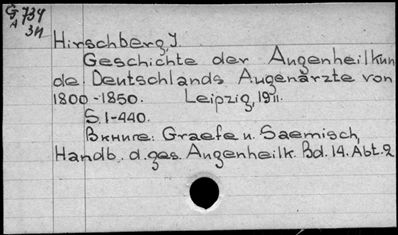 G 734
A 3H
Hirschberg, J.
Geschichte der Augenheilkun
de. Deutschlands Augenärzte von
1800-1850. Leipzig, 1911.
S. 1-440.
Вкниге: Graefe u. Saemisch,
Handb. d. ges. Augenheilk. Bd. 14. Abt. 2